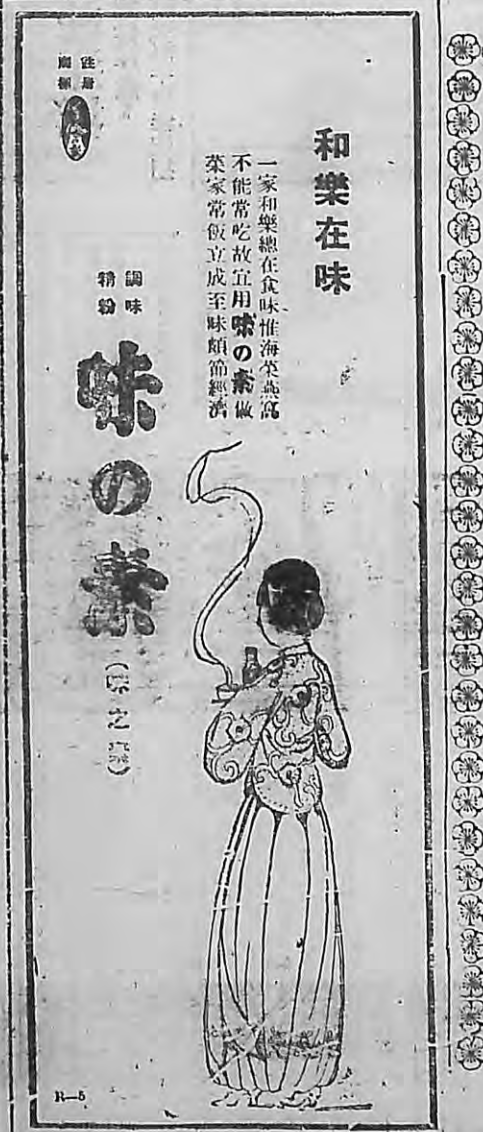 和樂在味
一家和樂總在食味惟海菜燕窩
不能常吃故宜用味の素做
菜家常飯立成至味頗節經濟
調味
精粉
味の素
註冊
商標
R—5